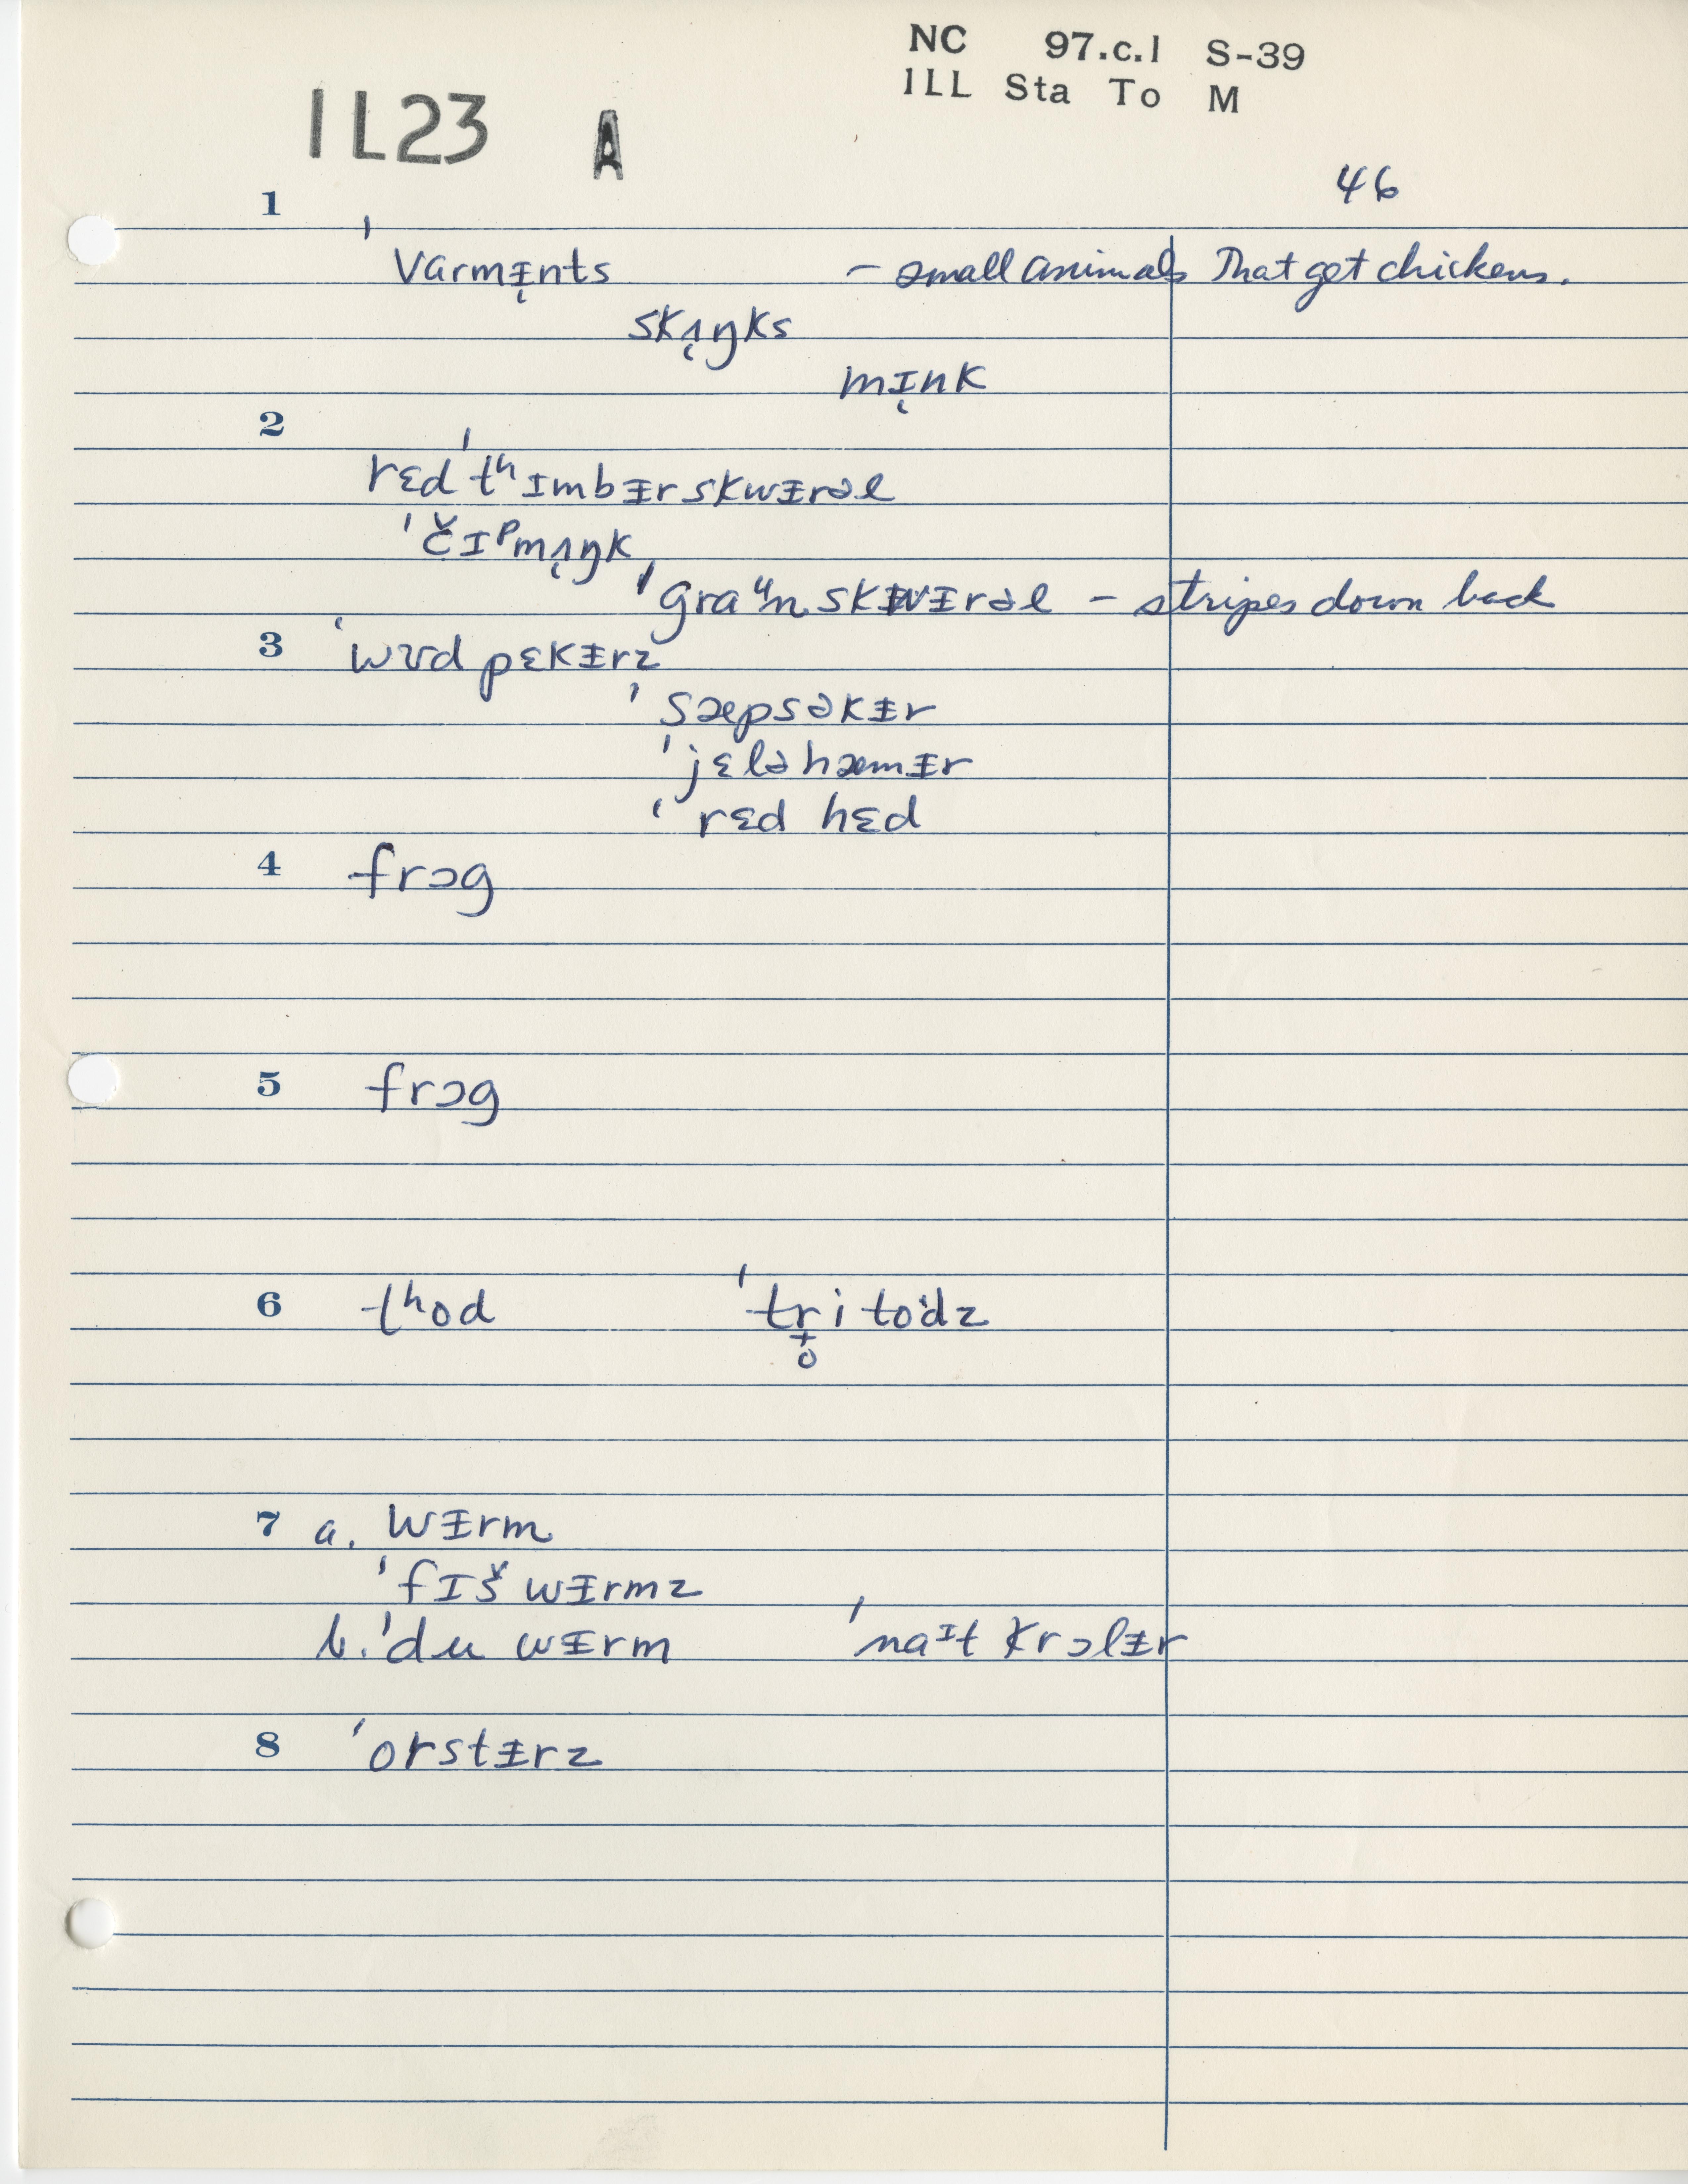 NC 97.c.1 S-39
ILL Sta To M
IL23 A
46
1
ˈvarmᵻ̨nts – small animals That get chickens.
skʌ̨ŋks
mɪ̨nk
2
rɛdˈtʰɪmbᵻrskwᵻrəl
ˈčɪᵖmʌ̨ŋk
ˈgraᵘnskwᵻrəl – stripes down back
3 ˈwʊdpɛkᵻrz
ˈsæpsəkᵻr
ˈjɛləhæmᵻr
ˈrɛd hɛd
4 frɔg
5 frɔg
6 tʰod ˈtr̟̥i to·dz
7 a. wᵻrm
ˈfɪš wᵻrmz
b. ˈdu wᵻrm ˈnaɪt krɔlᵻr
8 ˈorstᵻrz